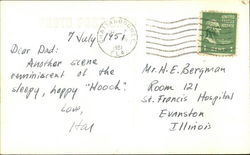 7 July 1951
Dear Dad:
Another scene
reminiscent of the
sleepy, happy "Hooch".
Love,
Hal
Mr. H. E. Bergman
Room 121
St. Francis Hospital
Evanston
Illinois
1951
FLA.